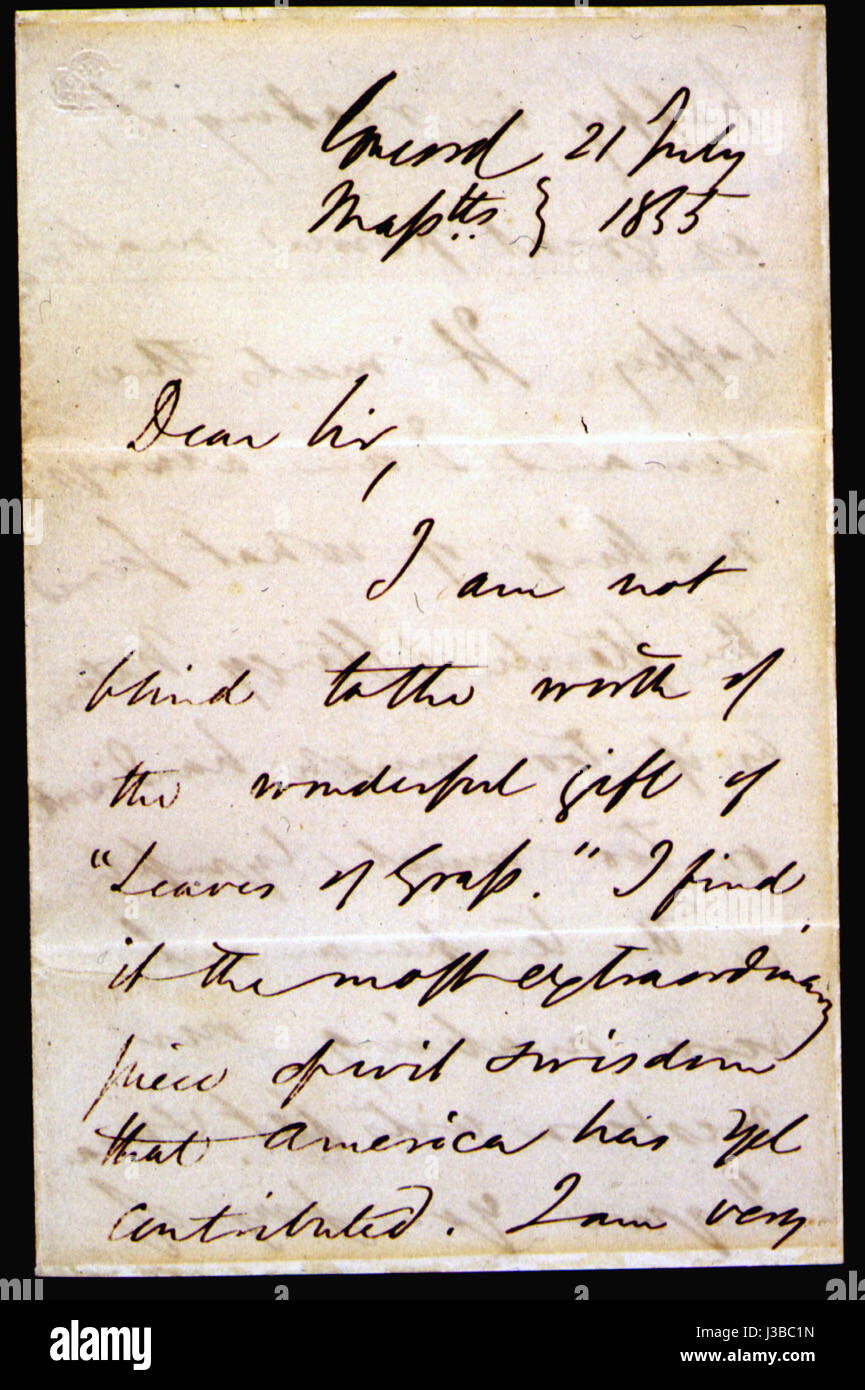 Concord 21 July
Masstts. } 1855
Dear Sir,
I am not
blind to the worth of
the wonderful gift of
"Leaves of Grass." I find
it the most extraordinary
piece of wit & wisdom
that America has yet
contributed. I am very
alamy
Image ID: J3BC1N
www.alamy.com